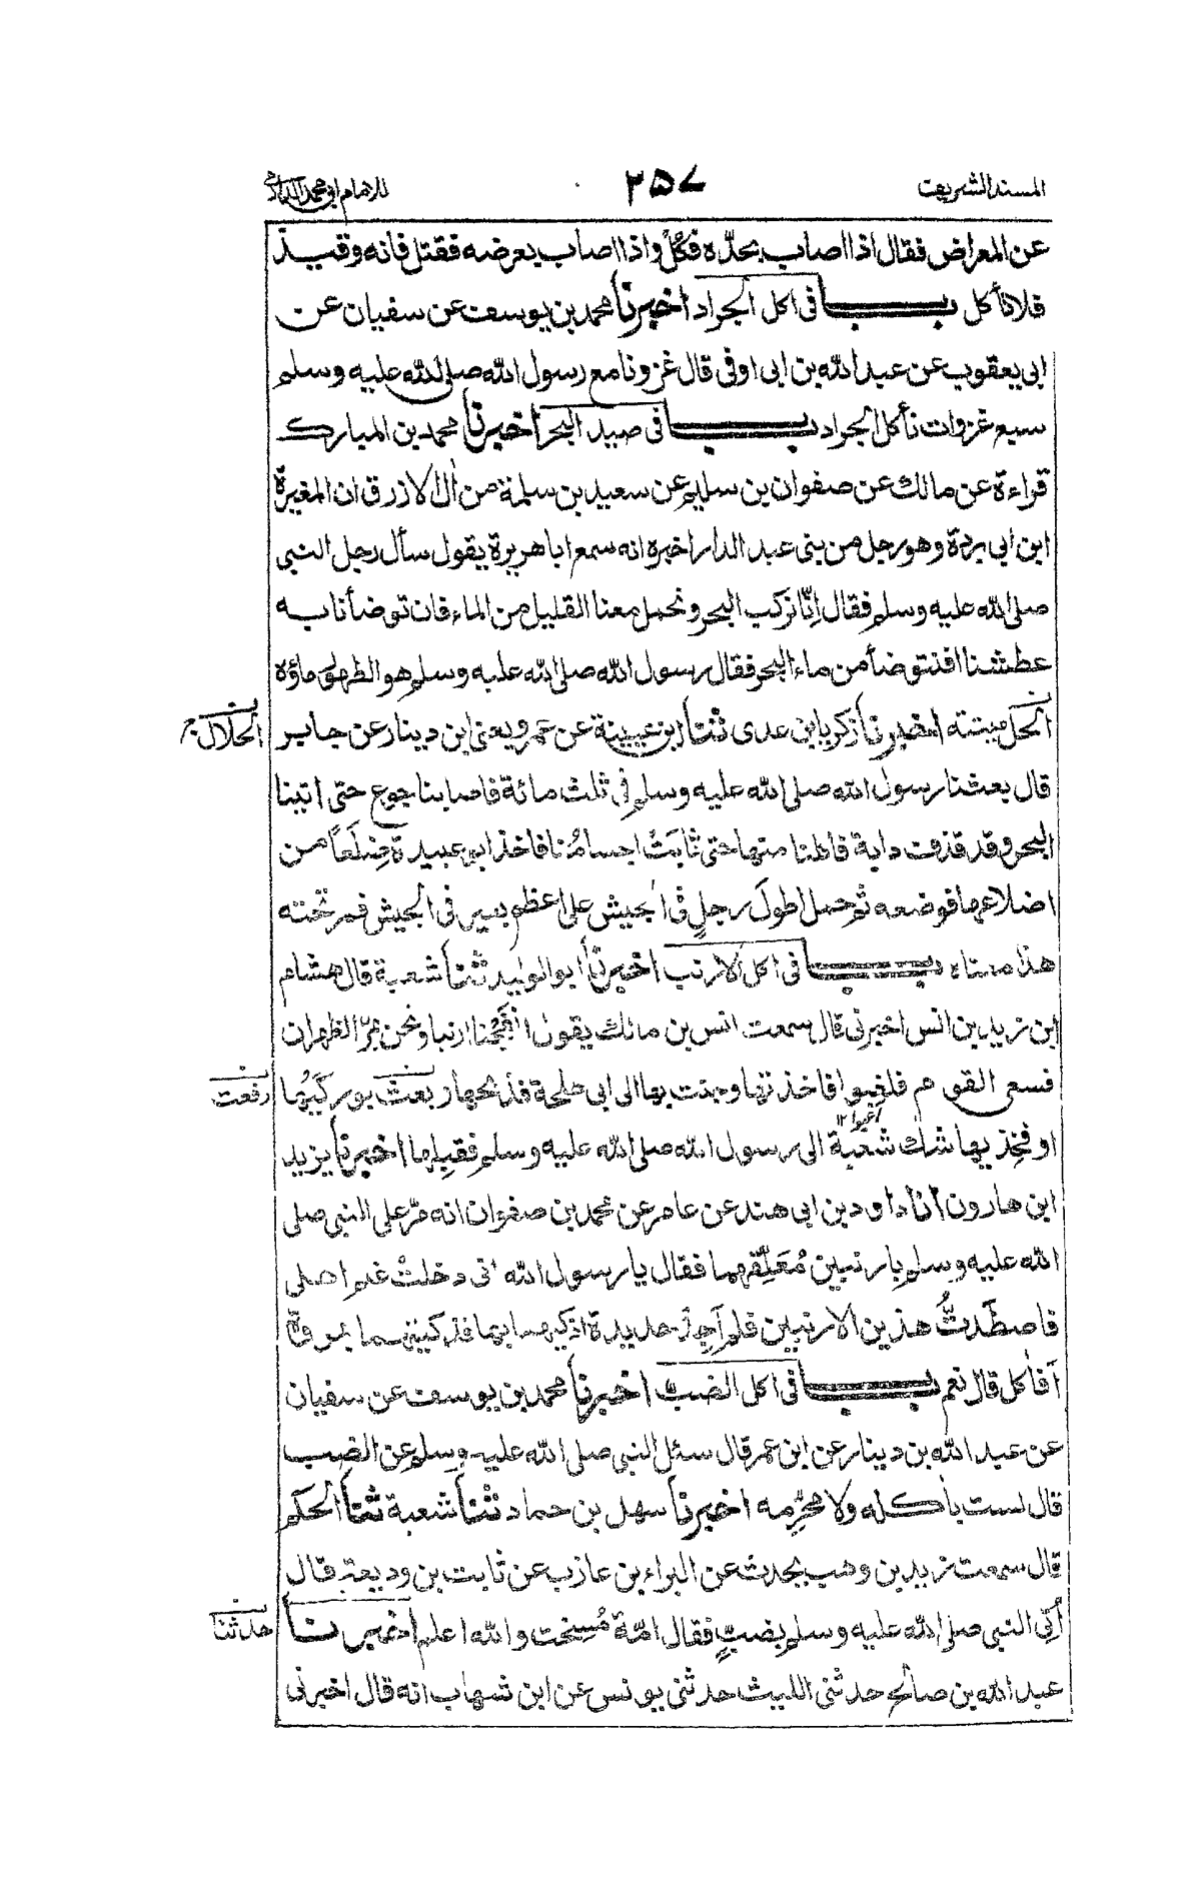 المسند الشريف
٢٥٧
للامام ابي محمد الدارمي
عن المعراض فقال اذا اصاب بحدّه فكُلْ واذا اصاب بعرضه فقتل فانه وقيذ
فلا تأكل باب في اكل الجراد اخبرنا محمد بن يوسف عن سفيان عن
ابي يعقوب عن عبد الله بن ابي اوفى قال غزونا مع رسول الله صلى الله عليه وسلم
سبع غزوات نأكل الجراد باب في صيد البحر اخبرنا محمد بن المبارك
قراءة عن مالك عن صفوان بن سليم عن سعيد بن سلمة من اٰل الازرق ان المغيرة
ابن ابي بردة وهو رجل من بني عبد الدار اخبره انه سمع ابا هريرة يقول سأل رجل النبي
صلى الله عليه وسلم فقال اِنّا نركب البحر ونحمل معنا القليل من الماء فان توضأنا به
عطشنا افنتوضأ من ماء البحر فقال رسول الله صلى الله عليه وسلم هو الطهور ماؤه
الحل ميتته اخبرنا زكريا بن عدي ثنا ابن عيينة عن عمرو يعني ابن دينار عن جابر
الحلال
قال بعثنا رسول الله صلى الله عليه وسلم في ثلث مائة فاصابنا جوع حتى اتينا
البحر وقد قذفت دابة فاكلنا منها حتى ثابَتْ اجسامُنا فاخذ ابو عبيدة ضِلَعًا من
اضلاعها فوضعه ثم حمل اطولَ رجلٍ في الجيش على اعظم بعير في الجيش فمر تحته
هذا معناه باب في اكل الارنب اخبرنا ابو الوليد ثنا شعبة قال هشام
ابن زيد بن انس اخبرني قال سمعت انس بن مالك يقول اَنْفَجْنا ارنبا ونحن بمرّ الظهران
فسعى القوم فلغبوا فاخذتها وجئت بها الى ابي طلحة فذبحها وبعث بوركَيْها
رفعت
اعيوا ١٢
او فخِذيها شك شعبة الى رسول الله صلى الله عليه وسلم فقبلها اخبرنا يزيد
ابن هارون انا داود بن ابي هند عن عامر عن محمد بن صفوان انه مرّ على النبي صلى
الله عليه وسلم بارنبين مُعَلِّقهما فقال يا رسول الله اني دخلتُ غنم اهلي
فاصطَدتُّ هذين الارنبين فلم اَجِدْ حديدة اذكيهما بها فذكيتهما بمروةٍ
اَفآكل قال نعم باب في اكل الضب اخبرنا محمد بن يوسف عن سفيان
عن عبد الله بن دينار عن ابن عمر قال سئل النبي صلى الله عليه وسلم عن الضب
قال لست باٰكله ولا محرِّمه اخبرنا سهل بن حماد ثنا شعبة ثنا الحكم
قال سمعت زيد بن وهب يحدث عن البراء بن عازب عن ثابت بن وديعة قال
اُتي النبي صلى الله عليه وسلم بضبٍّ فقال امّة مُسِخت والله اعلم اخبرنا
حدثنا
عبد الله بن صالح حدثني الليث حدثني يونس عن ابن شهاب انه قال اخبرني